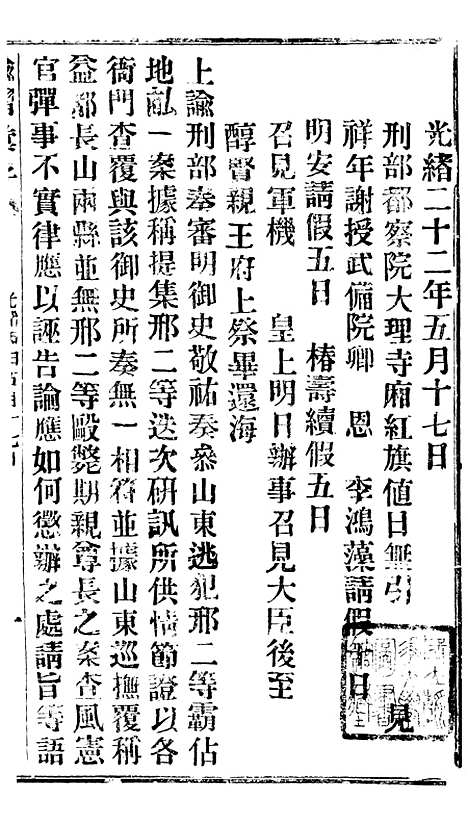 光緒二十二年五月十七日
刑部都察院大理寺廂紅旗值日無引　見
祥年謝授武備院卿　恩　李鴻藻請假十日
明安請假五日　椿壽續假五日
召見軍機　皇上明日辦事召見大臣後至
醇賢親王府上祭畢還海
上諭刑部奏審明御史敬祐奏叅山東逃犯邢二等霸佔
地畝一案據稱提集邢二等迭次研訊所供情節證以各
衙門查覆與該御史所奏無一相符並據山東巡撫覆稱
益都長山兩縣並無邢二等毆斃期親尊長之案查風憲
官彈事不實律應以誣告論應如何懲辦之處請旨等語
諭摺彙
光緒 一